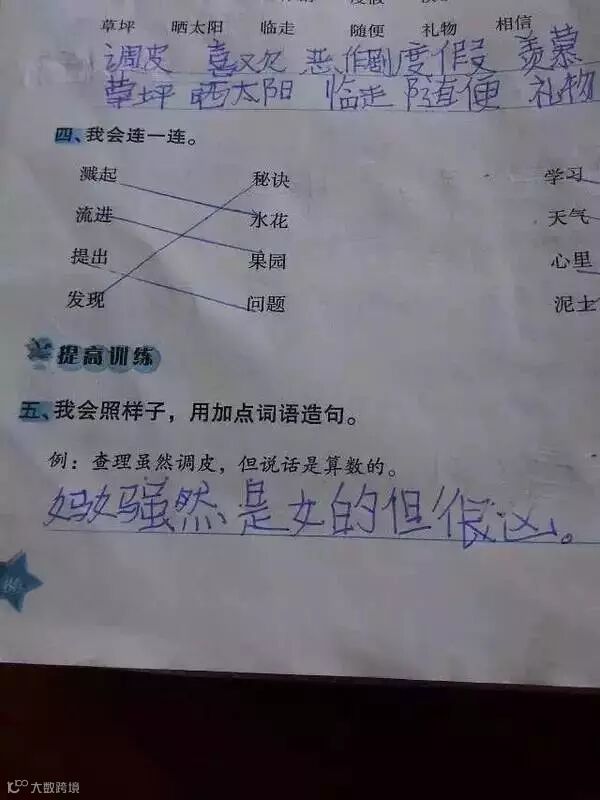 度假
草坪 晒太阳 临走 随便 礼物 相信
调皮 喜欢 恶作剧 度假 羡慕
草坪 晒太阳 临走 随便 礼物
四、我会连一连。
溅起 秘诀 学习
流进 水花 天气
提出 果园 心里
发现 问题 泥土
提高训练
五、我会照样子，用加点词语造句。
例：查理虽然调皮，但说话是算数的。
妈妈虽然是女的但很凶。
大数跨境